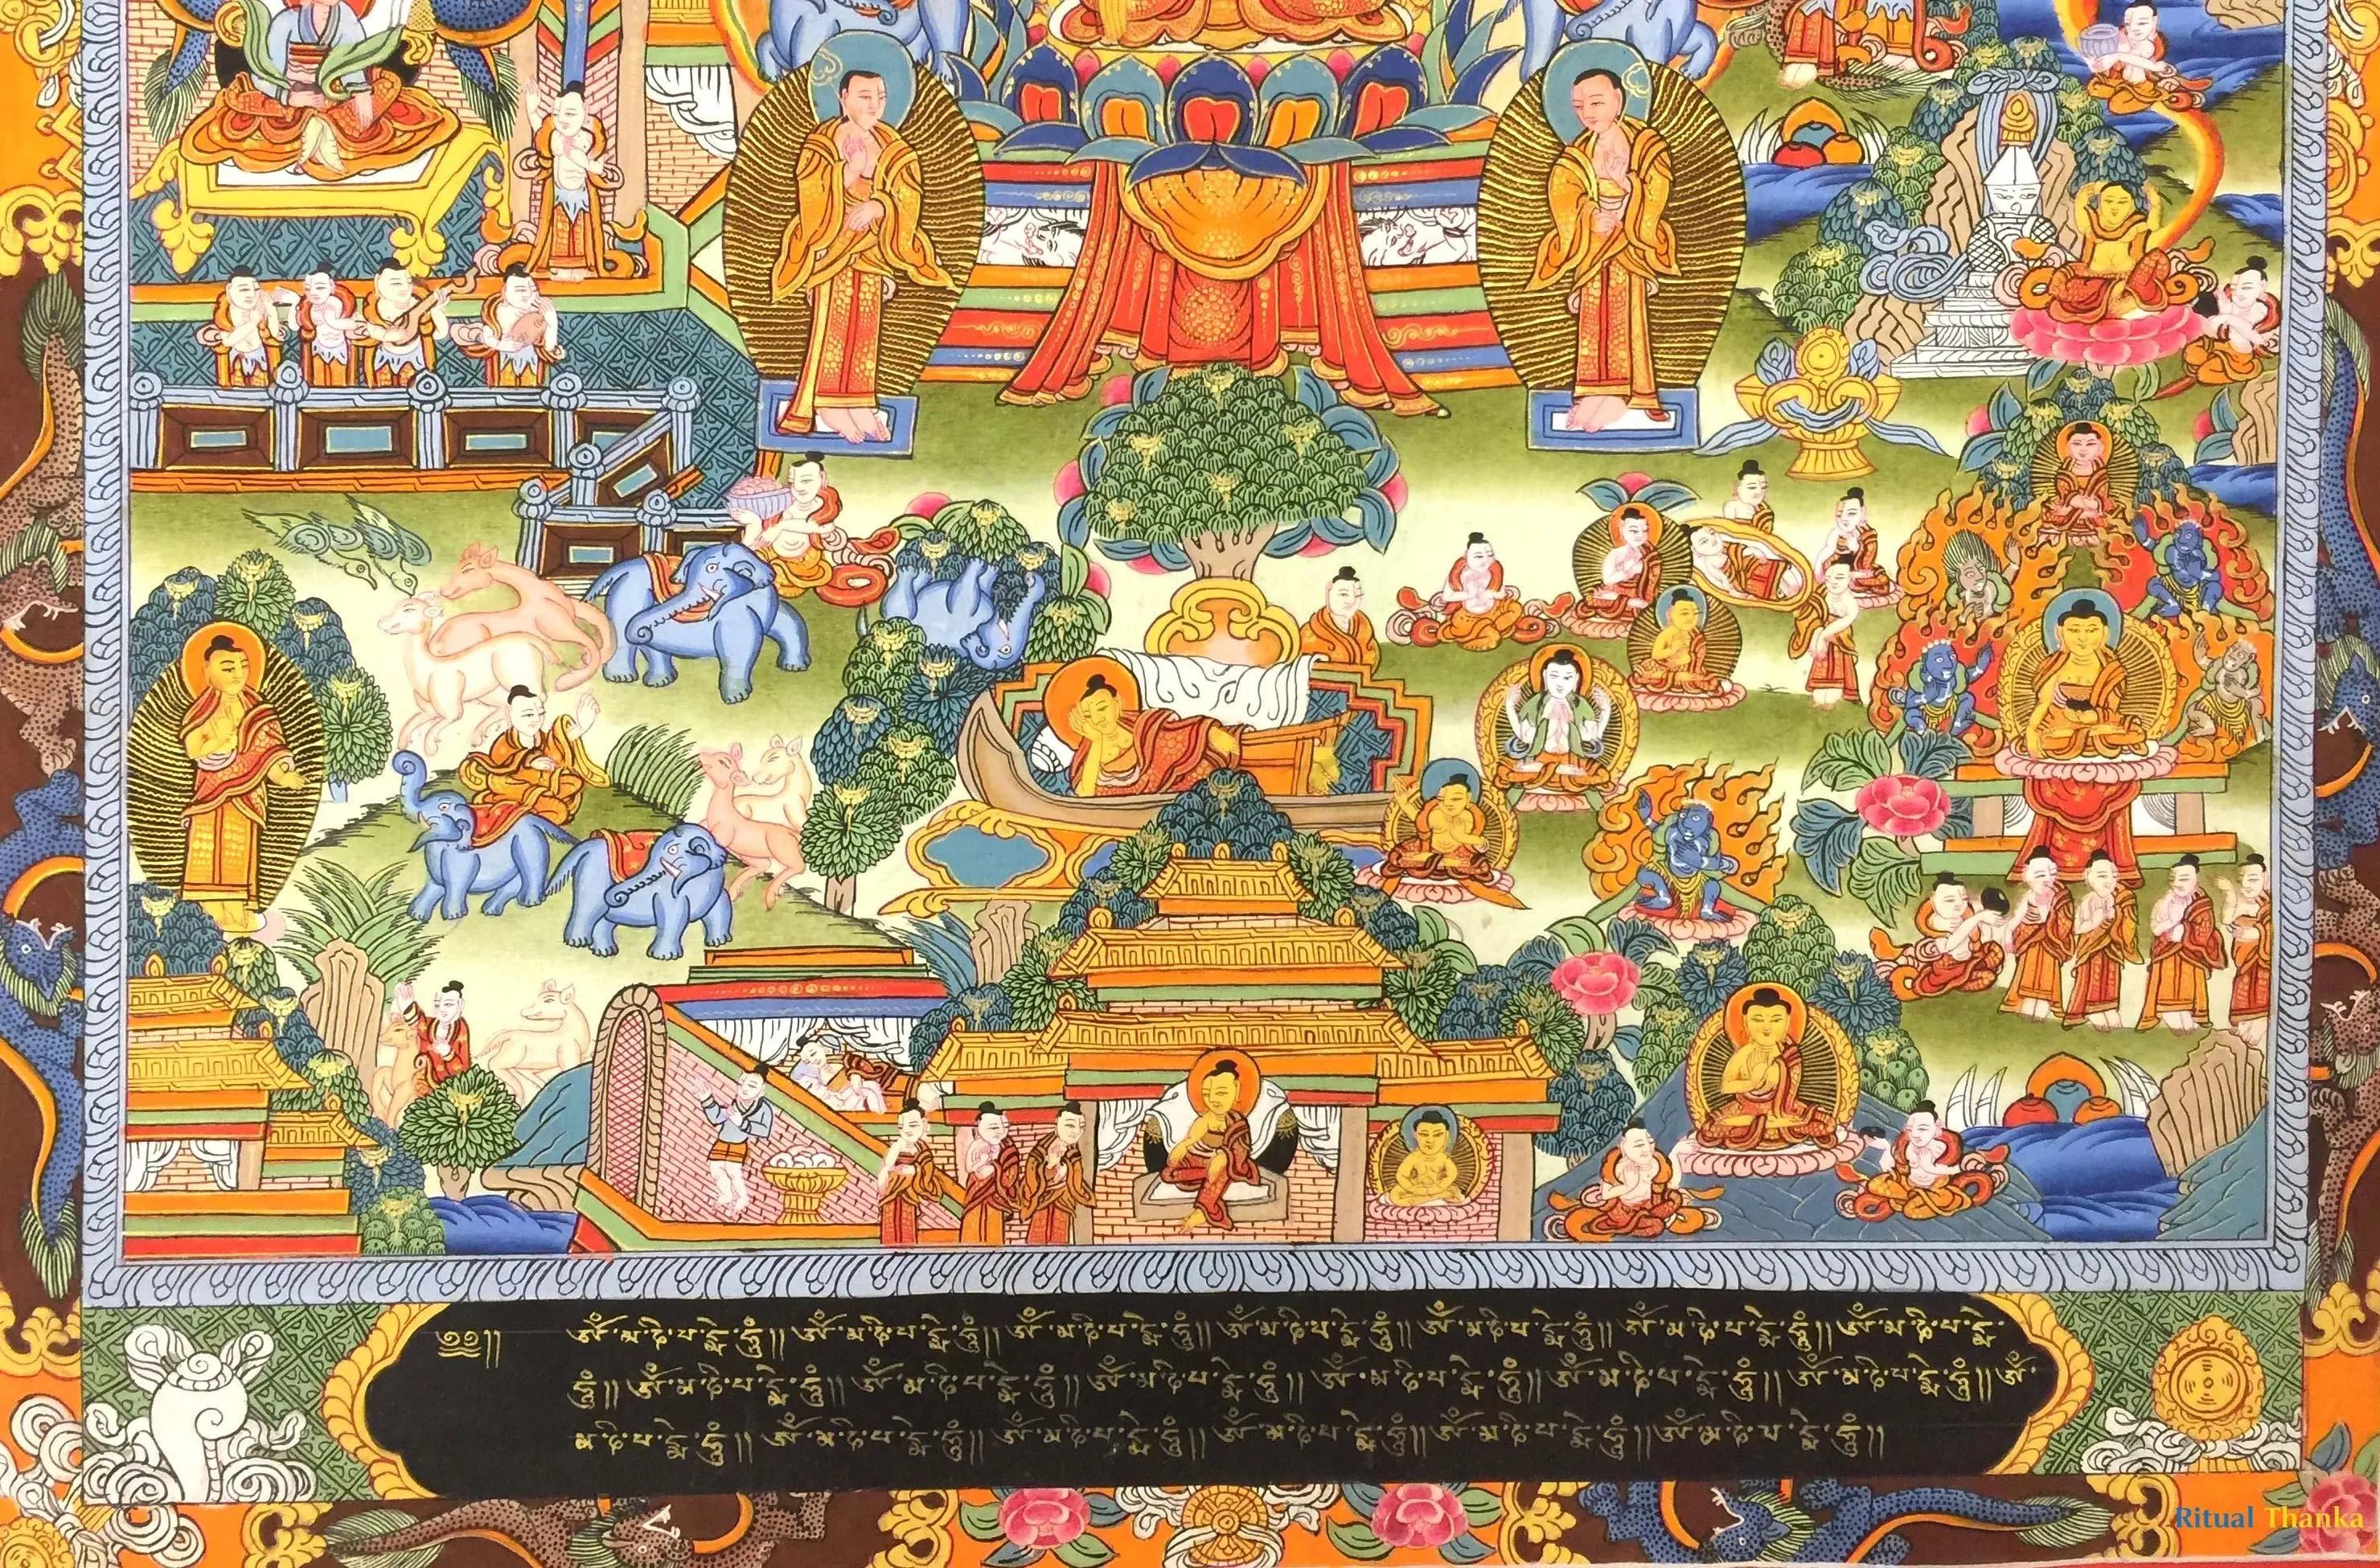 ༄༅།། ཨོཾ་མ་ཎི་པ་དྨེ་ཧཱུྃ།། ཨོཾ་མ་ཎི་པ་དྨེ་ཧཱུྃ།། ཨོཾ་མ་ཎི་པ་དྨེ་ཧཱུྃ།། ཨོཾ་མ་ཎི་པ་དྨེ་ཧཱུྃ།། ཨོཾ་མ་ཎི་པ་དྨེ་ཧཱུྃ།། ཨོཾ་མ་ཎི་པ་དྨེ་ཧཱུྃ།། ཨོཾ་མ་ཎི་པ་དྨེ་
ཧཱུྃ།། ཨོཾ་མ་ཎི་པ་དྨེ་ཧཱུྃ།། ཨོཾ་མ་ཎི་པ་དྨེ་ཧཱུྃ།། ཨོཾ་མ་ཎི་པ་དྨེ་ཧཱུྃ།། ཨོཾ་མ་ཎི་པ་དྨེ་ཧཱུྃ།། ཨོཾ་མ་ཎི་པ་དྨེ་ཧཱུྃ།། ཨོཾ་མ་ཎི་པ་དྨེ་ཧཱུྃ།། ཨོཾ་
མ་ཎི་པ་དྨེ་ཧཱུྃ།། ཨོཾ་མ་ཎི་པ་དྨེ་ཧཱུྃ།། ཨོཾ་མ་ཎི་པ་དྨེ་ཧཱུྃ།། ཨོཾ་མ་ཎི་པ་དྨེ་ཧཱུྃ།། ཨོཾ་མ་ཎི་པ་དྨེ་ཧཱུྃ།། ཨོཾ་མ་ཎི་པ་དྨེ་ཧཱུྃ།།
Ritual Thanka